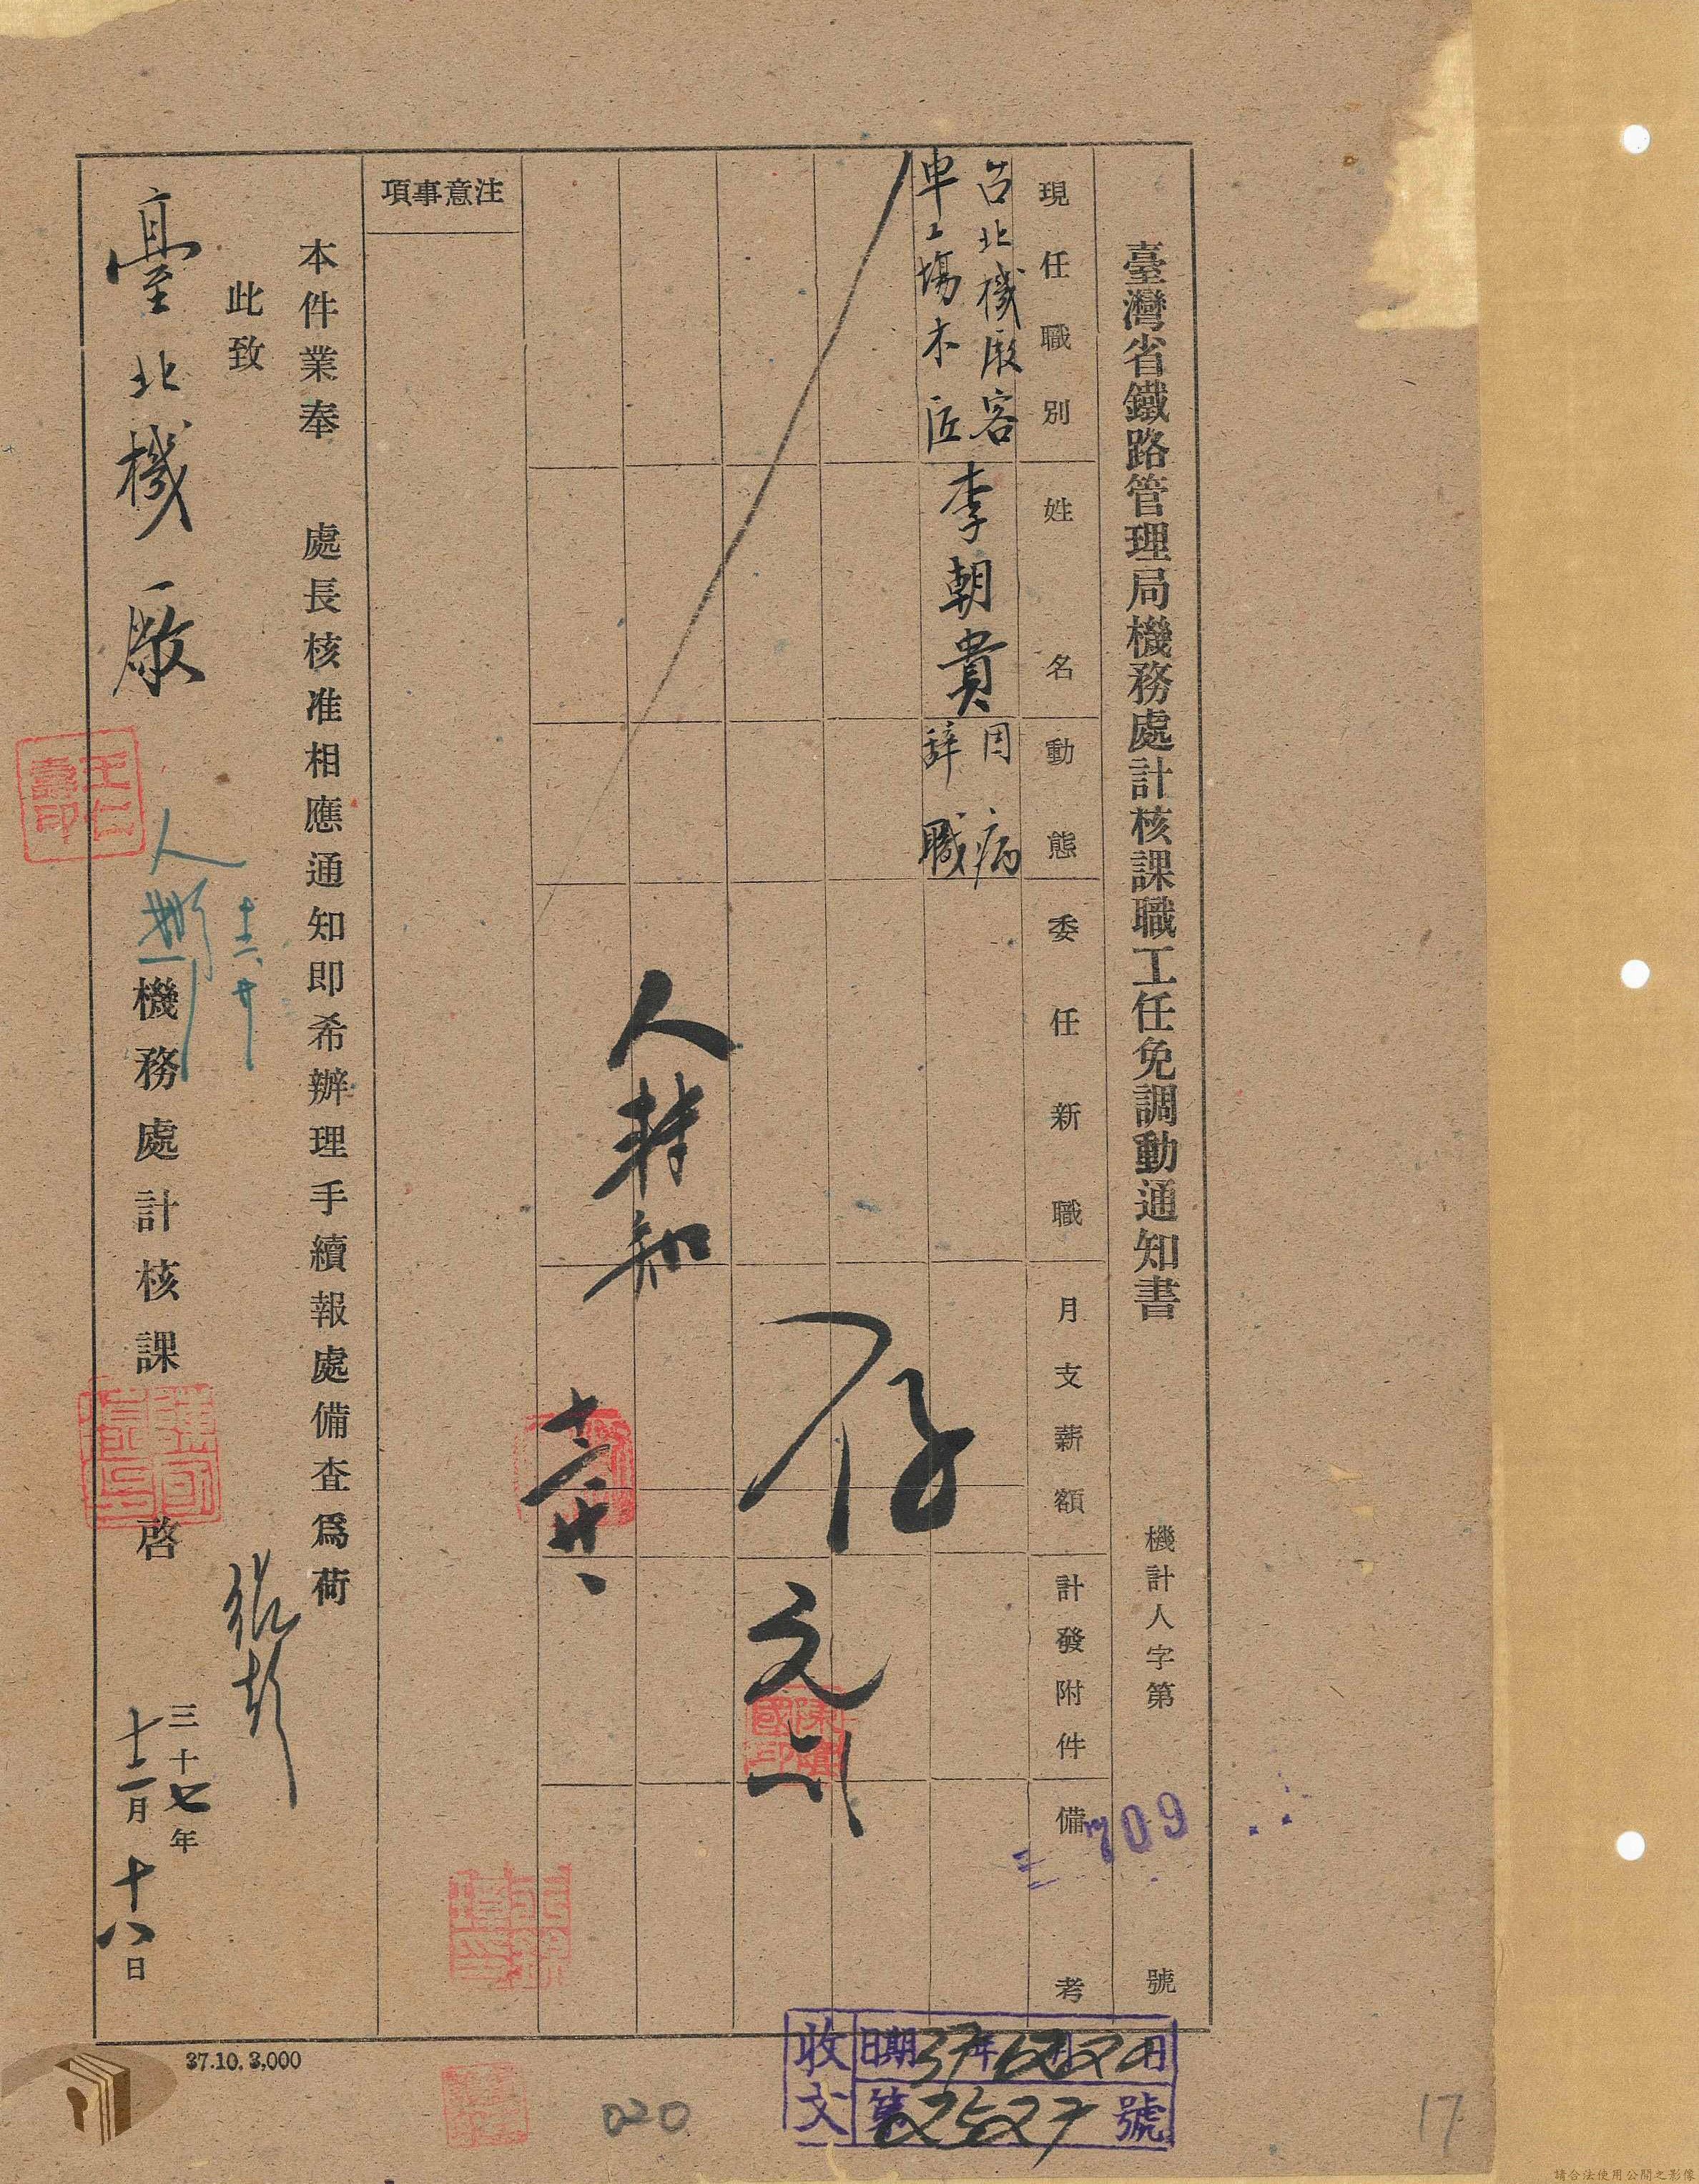 臺灣省鐵路管理局機務處計核課職工任免調動通知書
機計人字第 709 號
現任職別
姓名
動態
委任新職
月支薪額
計發附件
備考
台北機厰客
車工場木匠
李朝貴
因病
辭職
存
人
知
注意事項
本件業奉 處長核准相應通知即希辦理手續報處備查爲荷
此致
臺北機厰
機務處計核課 啓
三十七年
十二月十八日
王仁壽印
收文
日期37年12月20日
第2527號
37.10.3,000
020
17
請合法使用公開之影像